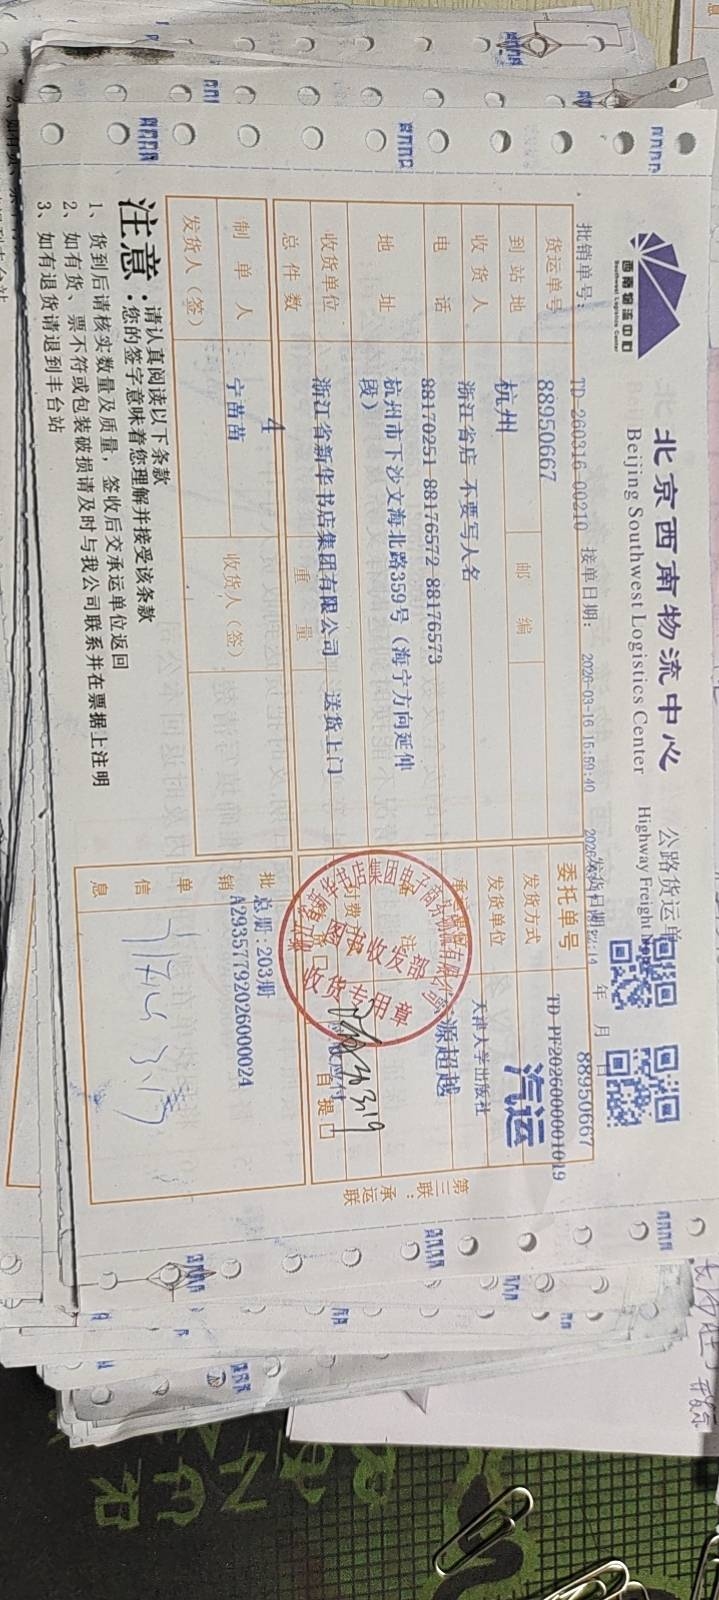 西南物流中心
Southwest Logistics Center
北京西南物流中心
公路货运单
Beijing Southwest Logistics Center
Highway Freight
批销单号: TD-260316-00210 接单日期: 2026-03-16 15:59:40 发货日期: 年 月 日
货运单号 88950667
委托单号 88950667
TD-PF2026000001019
到站地 杭州 邮编
发货方式 汽运
收货人 浙江省店 不要写人名
发货单位 天津大学出版社
电话 88170251 88176572 88176573
源超越
地址 杭州市下沙文海北路359号（海宁方向延伸段）
备注
收货单位 浙江省新华书店集团有限公司 送货上门
自提口
总件数 4 重量
制单人 宁苗苗 收货人（签）
发货人（签）
批销单信息 总册:203册
A29357792026000024
图书收发部
收货专用章
3.19
第三联 承运联
注意:
请认真阅读以下条款
您的签字意味着您理解并接受该条款
1、货到后请核实数量及质量，签收后交承运单位返回
2、如有货、票不符或包装破损请及时与我公司联系并在票据上注明
3、如有退货请退到丰台站